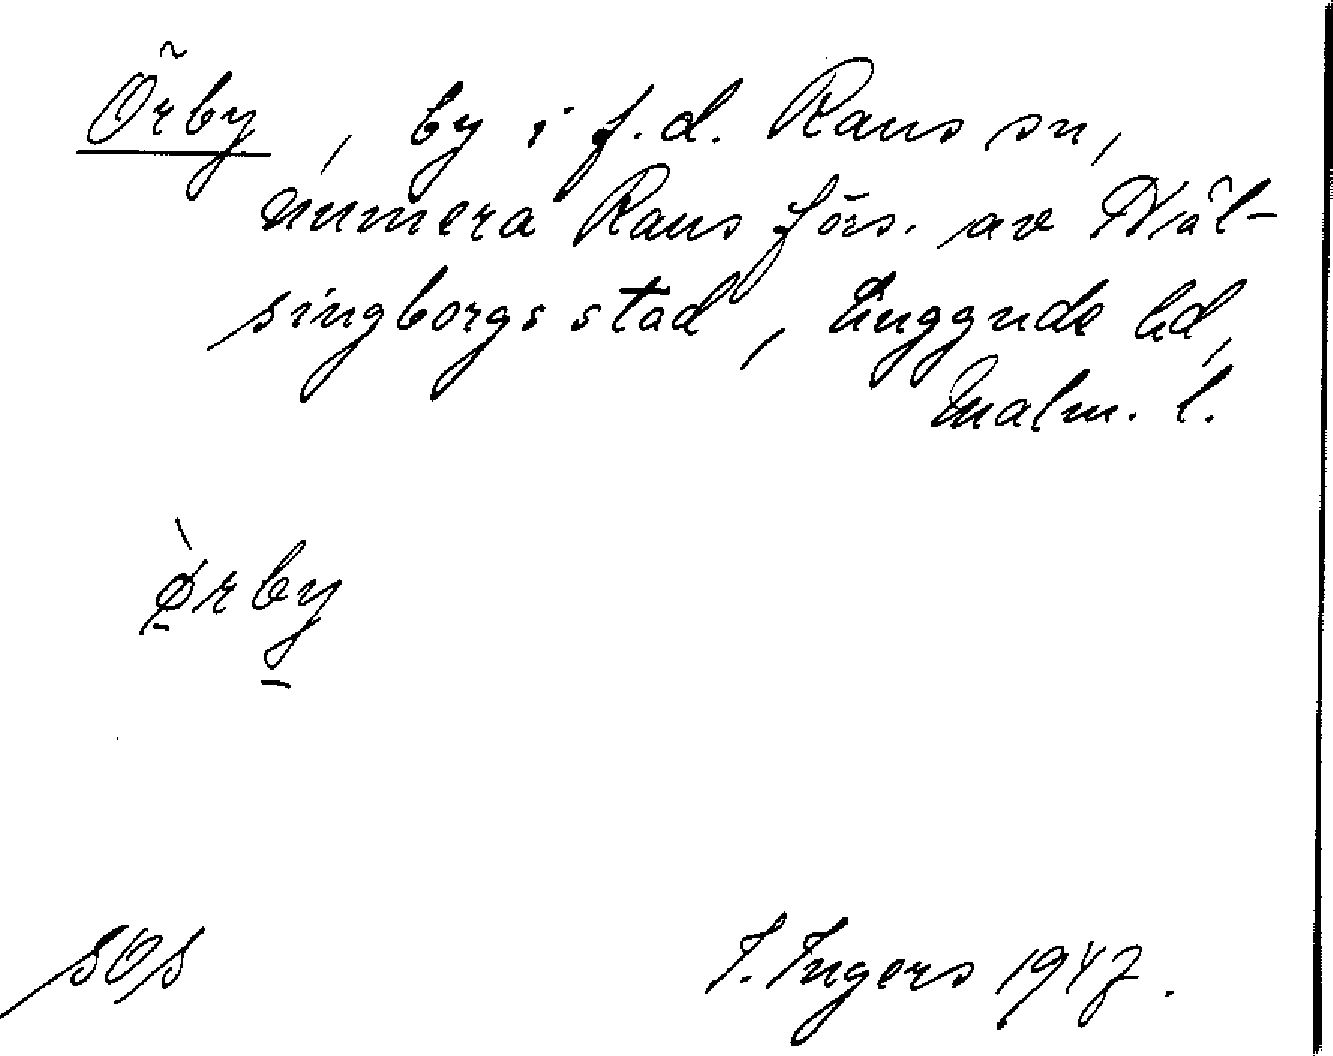 Örby, by i f.d. Raus sn,
numera Raus förs. av Häl-
singborgs stad, Luggude hd,
Malm. l.
ø̀rby
SOS
I. Ingers 1947.